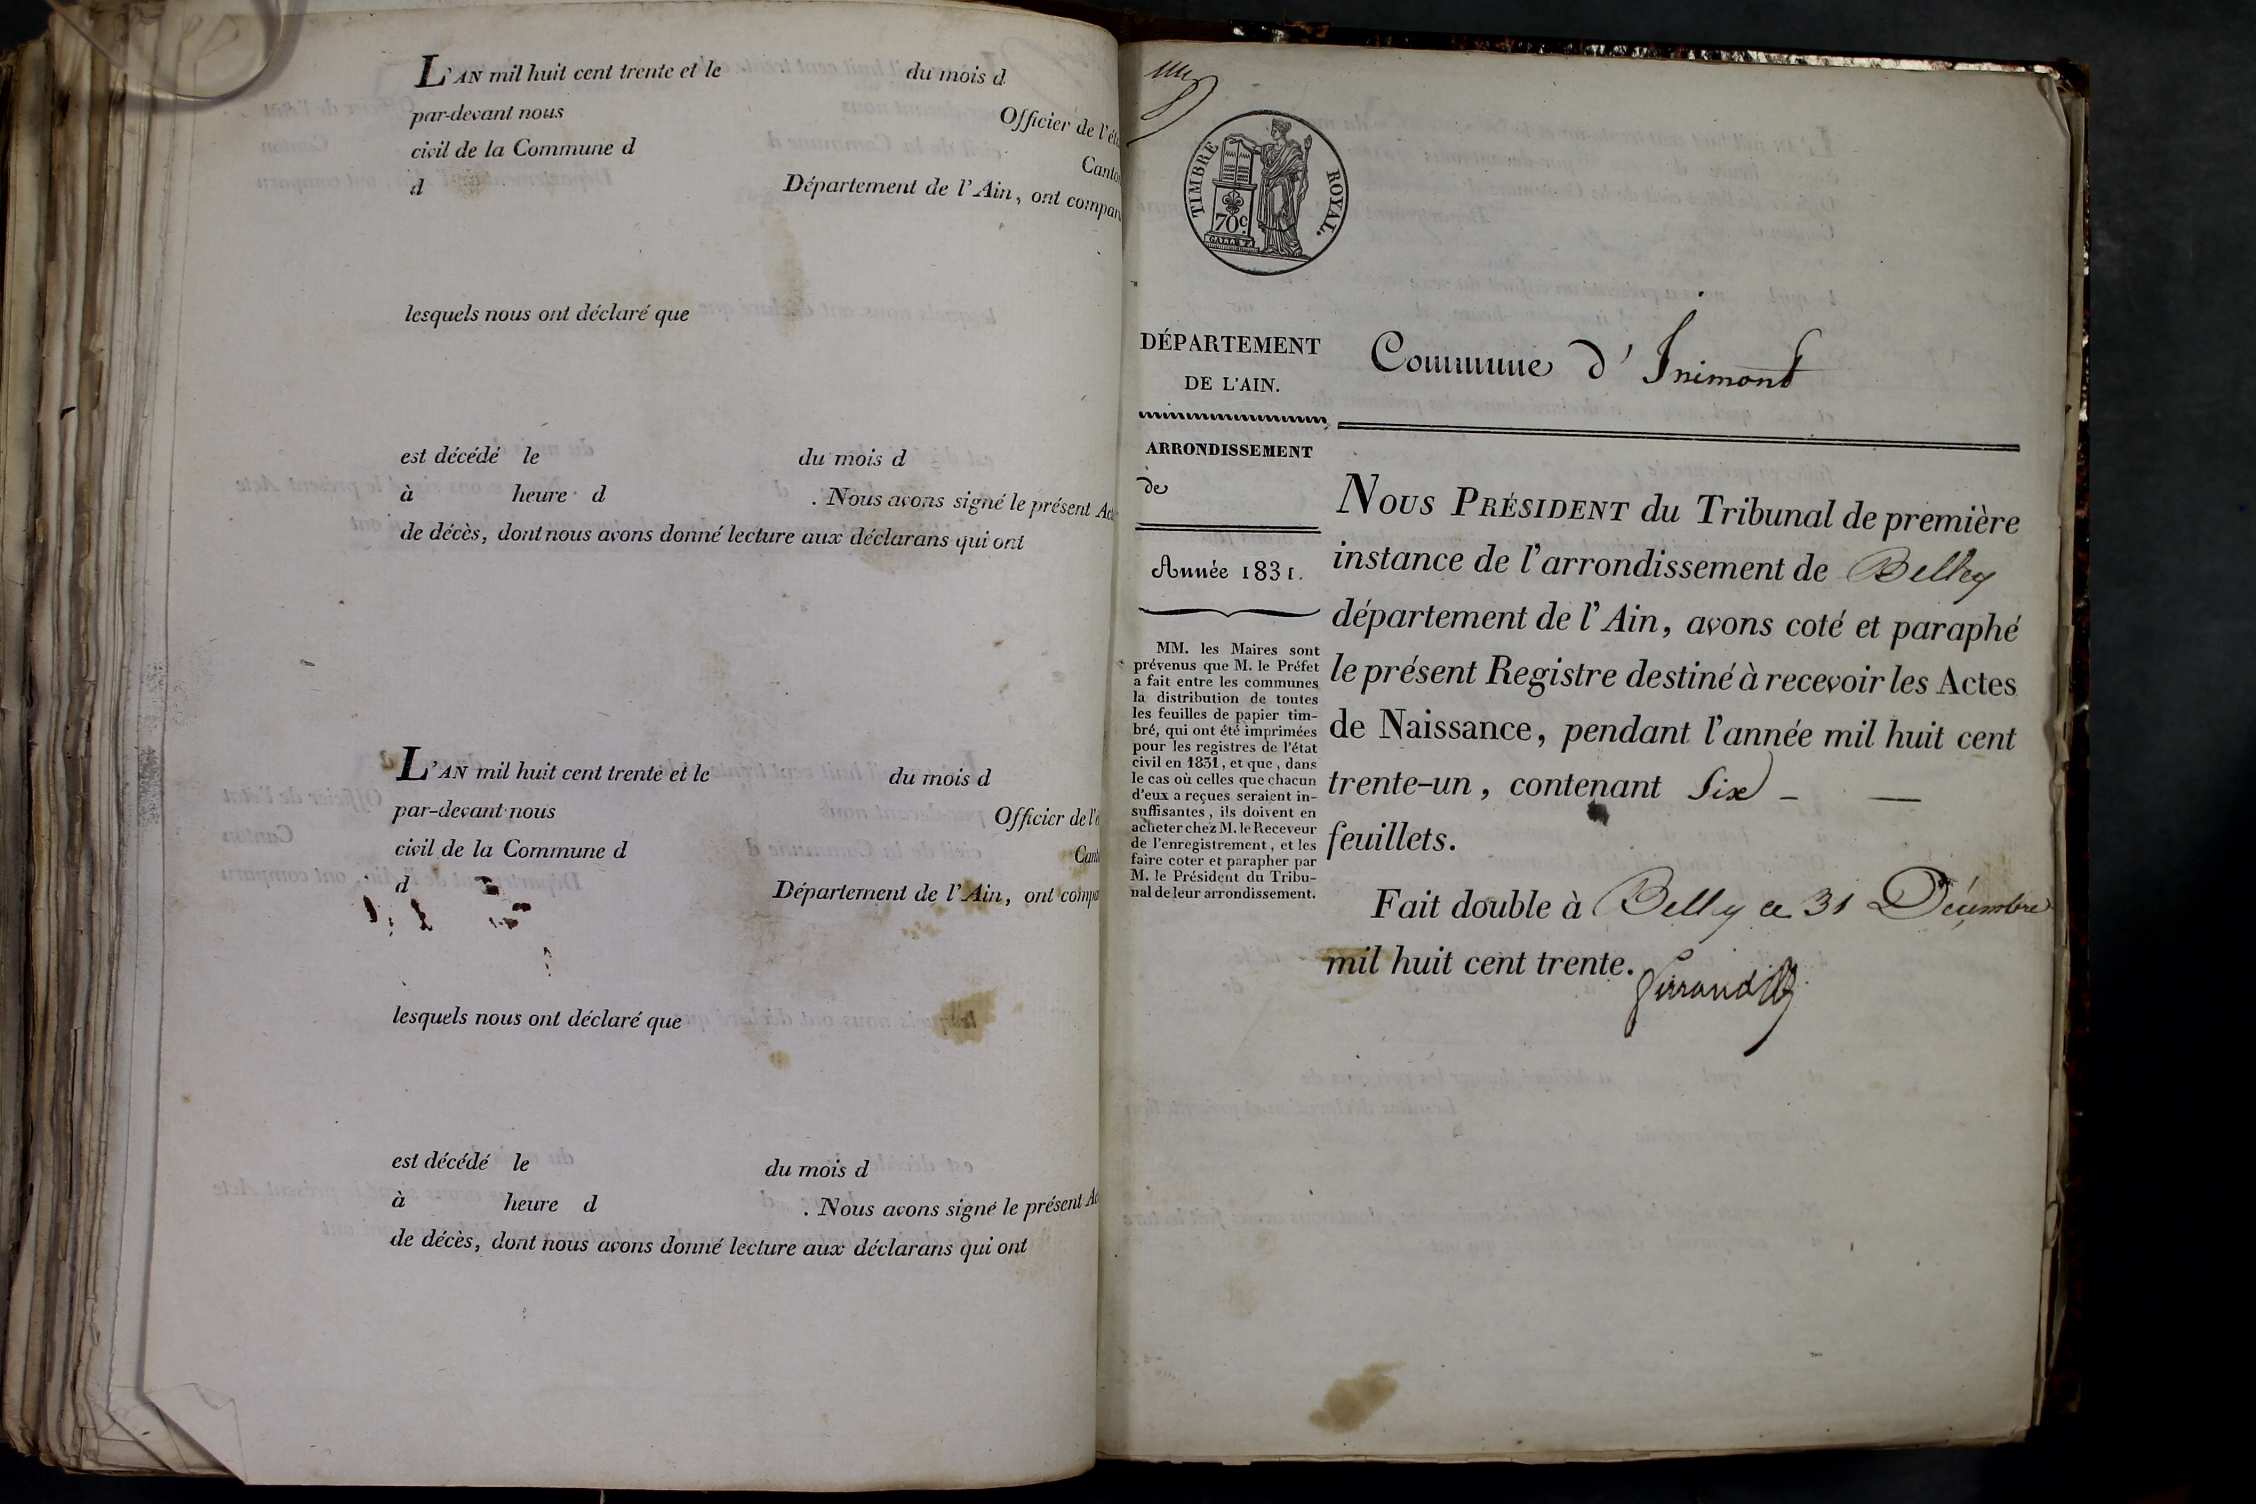 L'AN mil huit cent trente et le du mois d
par-devant nous Officier de l'éta
civil de la Commune d Canton
d Département de l'Ain, ont comparu
lesquels nous ont déclaré que
est décédé le du mois d
à heure d . Nous avons signé le présent Acte
de décès, dont nous avons donné lecture aux déclarans qui ont
L'AN mil huit cent trente et le du mois d
par-devant nous Officier de l'é
civil de la Commune d Cant
d Département de l'Ain, ont compa
lesquels nous ont déclaré que
est décédé le du mois d
à heure d . Nous avons signé le présent Ac
de décès, dont nous avons donné lecture aux déclarans qui ont
TIMBRE ROYAL.
70c.
DÉPARTEMENT
DE L'AIN.
Commune d'Inimont
ARRONDISSEMENT
de
Année 1831.
MM. les Maires sont
prévenus que M. le Préfet
a fait entre les communes
la distribution de toutes
les feuilles de papier tim-
bré, qui ont été imprimées
pour les registres de l'état
civil en 1831, et que, dans
le cas où celles que chacun
d'eux a reçues seraient in-
suffisantes, ils doivent en
acheter chez M. le Receveur
de l'enregistrement, et les
faire coter et parapher par
M. le Président du Tribu-
nal de leur arrondissement.
NOUS PRÉSIDENT du Tribunal de première
instance de l'arrondissement de Belley
département de l'Ain, avons coté et paraphé
le présent Registre destiné à recevoir les Actes
de Naissance, pendant l'année mil huit cent
trente-un, contenant Six — —
feuillets.
Fait double à Belley ce 31 Décembre
mil huit cent trente.